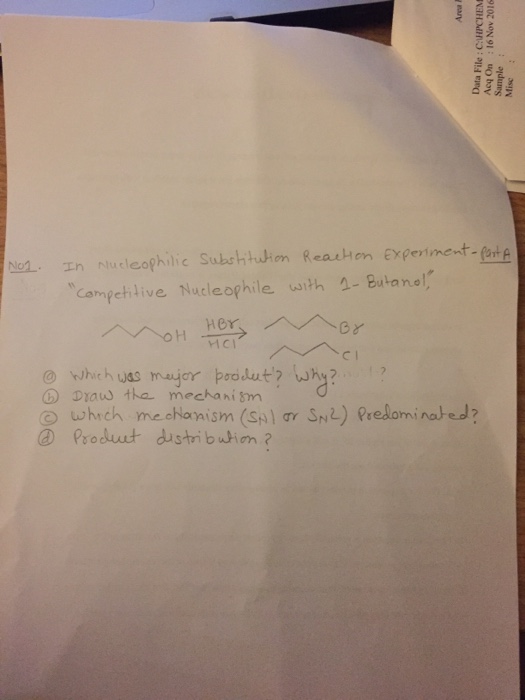 No1. In Nucleophilic Substitution Reaction Experiment - Part A
"Competitive Nucleophile with 1-Butanol"
OH HBr HCl Br
Cl
(a) Which was major product? Why? ?
(b) Draw the mechanism
(c) which mechanism (SN1 or SN2) Predominated?
(d) Product distribution?
Area
Data File : C:\HPCHEM
Acq On : 16 Nov 2016
Sample :
Misc :